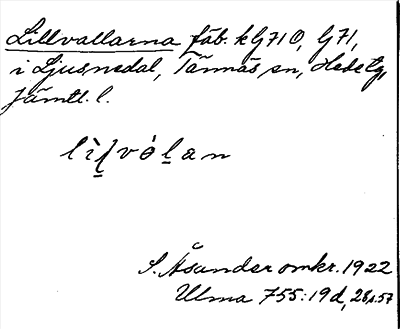 Lillvallarna fäb. k G710, G71,
i Ljusnedal, Tännäs sn, Hede tg,
Jämtl. l.
lìḻvó̱ḻan
S. Åsander omkr. 1922
Ulma 755:19d, 28 s. 57